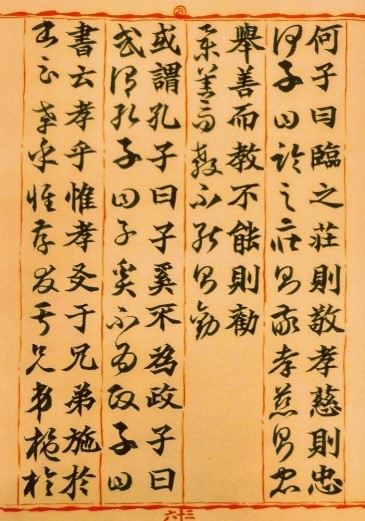 何子曰臨之莊則敬孝慈則忠
何子曰臨之莊則敬孝慈則忠
舉善而教不能則勸
舉善而教不能則勸
或謂孔子曰子奚不為政子曰
或謂孔子曰子奚不為政子曰
書云孝乎惟孝友于兄弟施於
書云孝乎惟孝友于兄弟施於
六十三